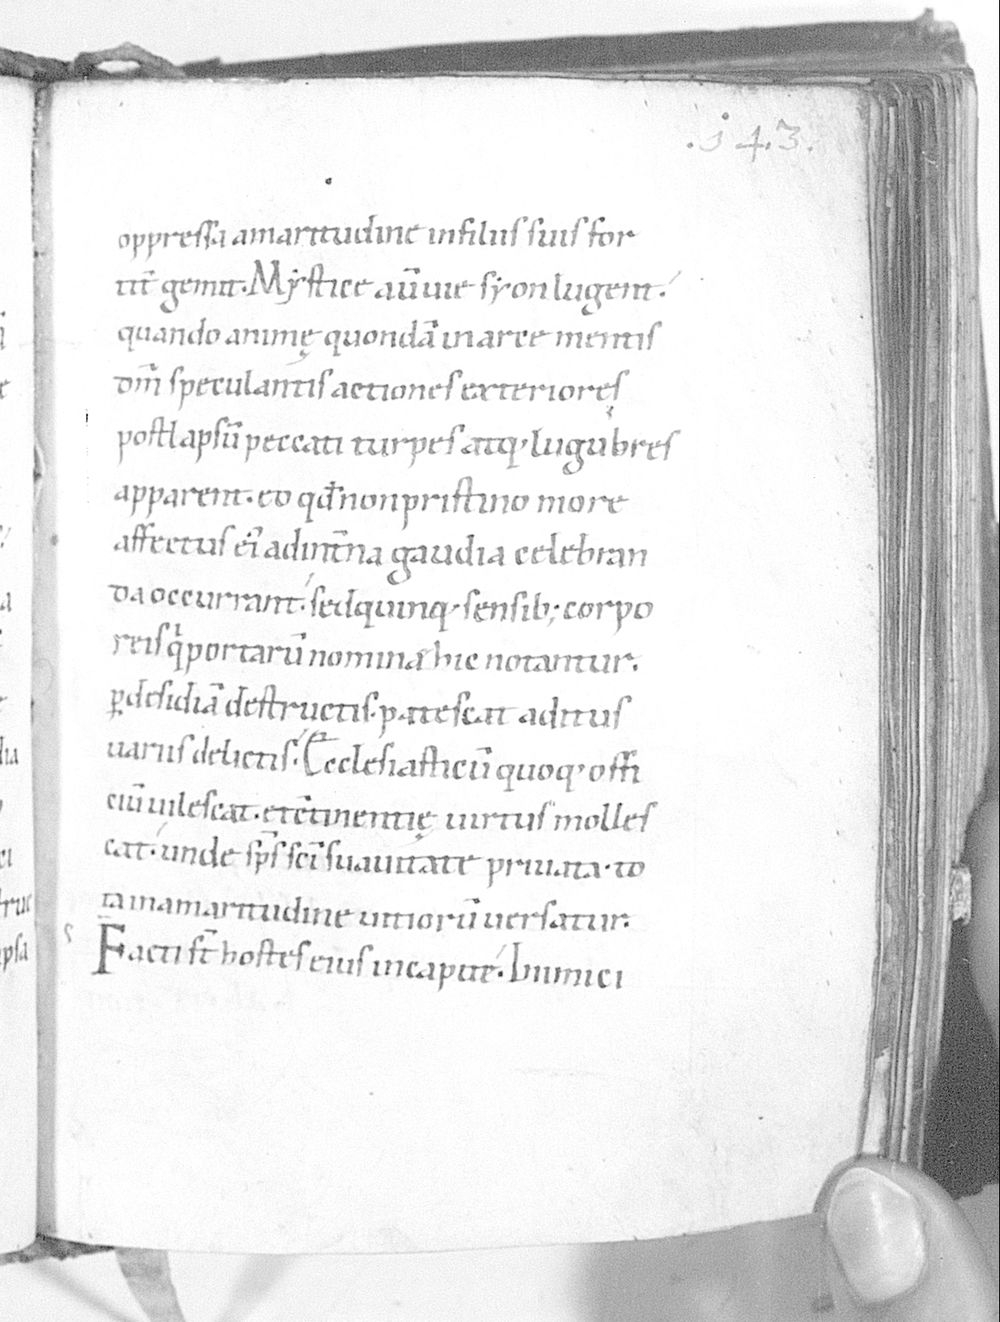 .143.
oppressa amaritudine in filiis suis for
tit̄ gemit. Mẏstice aūt uie sẏon lugent.
quando animę quondā in arce mentis
dm̄ speculantis actiones exteriores
post lapsū peccati turpes atq; lugubres
apparent. eo qđ non pristino more
affectus ei ad int̄na gaudia celebran
da occurrant. sed quinq; sensib; corpo
reis q̇ portarū nomina hic notantur.
ꝑ desidiā destructis. patescat aditus
uariis delictis. Ecclesiasticū quoq; offi
ciū uilescat. et c̄tinentię uirtus molles
cat. unde sp̄s sc̄i suauitate priuata. to
ta in amaritudine uitiorū uersatur.
Facti st̄ hostes eius in capite. Inimici